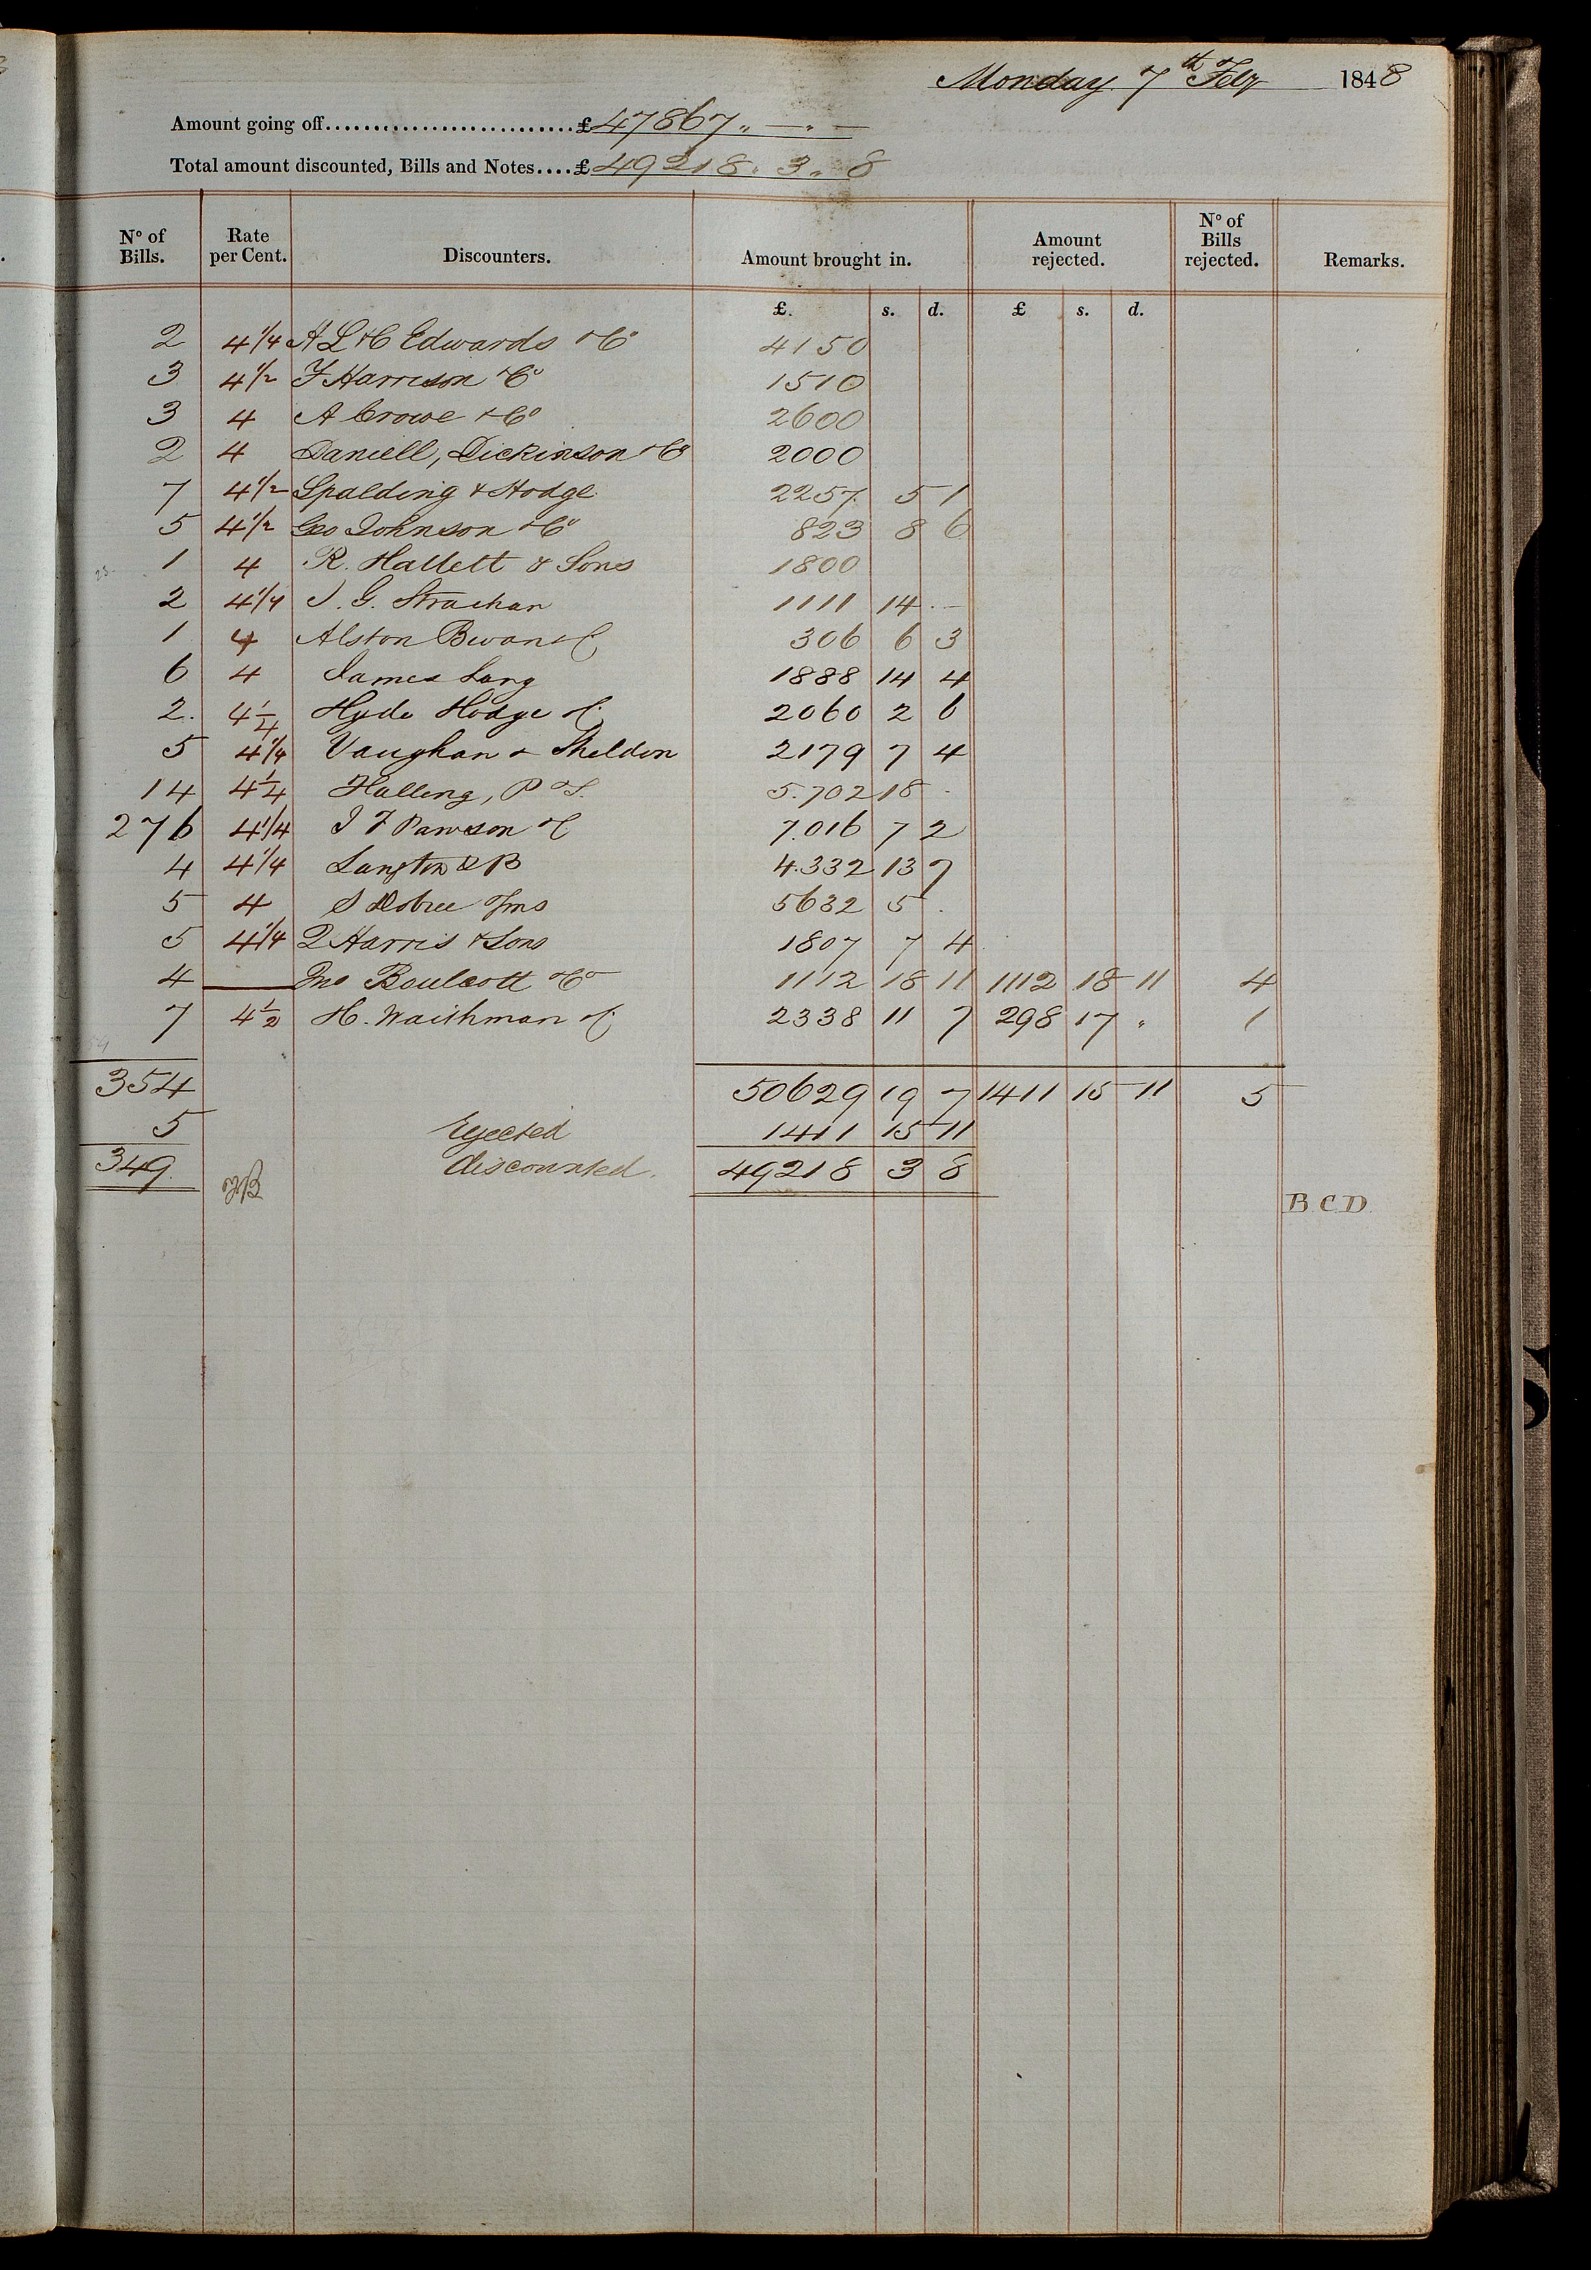 Monday 7th Feby 1848
Amount going off...........................£47867 " — " —
Total amount discounted, Bills and Notes....£49218 . 3 . 8
No of Bills. Rate per Cent. Discounters. Amount brought in. Amount rejected. No of Bills rejected. Remarks.
£. s. d. £ s. d.
2 4 1/4 A L & C Edwards & Co 4150
3 4 1/2 F Harrison & Co 1510
3 4 A Crowe & Co 2600
2 4 Daniell, Dickinson & Co 2000
7 4 1/2 Spalding & Hodge 2257. 5 1
5 4 1/2 Geo Johnson & Co 823 8 6
1 4 R. Hallett & Sons 1800
2 4 1/4 J. G. Strachan 1111 14 . —
1 4 Alston Bwan & C 306 6 3
6 4 James Lang 1888 14 4
2. 4 1/4 Hyde Hodge & C 2060 2 6
5 4 1/4 Vaughan & Sheldon 2179 7 4
14 4 1/4 Halling, P & S. 5.702 18 .
276 4 1/4 J F Pawson & C 7.016 7 2
4 4 1/4 Langton & B 4.332 13 7
5 4 S Dobree & Sns 5632 5 .
5 4 1/4 Q Harris & Sons 1807 7 4
4 — Jno Boulcott & Co 1112 18 11 1112 18 11 4
7 4 1/2 H. Waithman & C 2338 11 7 298 17 " 1
354 50629 19 7 1411 15 11 5
5 Ejected 1411 15 11
349. discounted. 49218 3 8
B C D